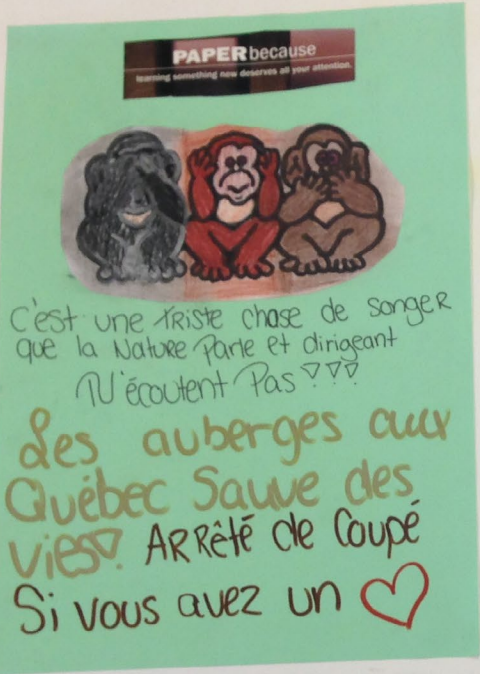 PAPERbecause
learning something new deserves all your attention.
C'est une TRiste chose de songeR
que la Nature Parle et dirigeant
N'écoutent Pas!!!
Les auberges aux
Québec Sauve des
vies! ARRêté de Coupé
Si vous avez un ♡